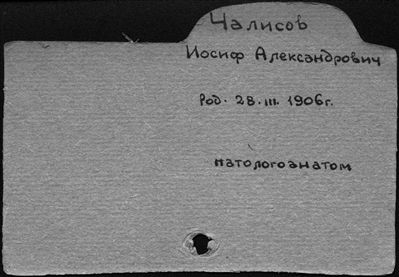 Чалисов
Иосиф Александрович
Род. 28.III.1906г.
патологоанатом